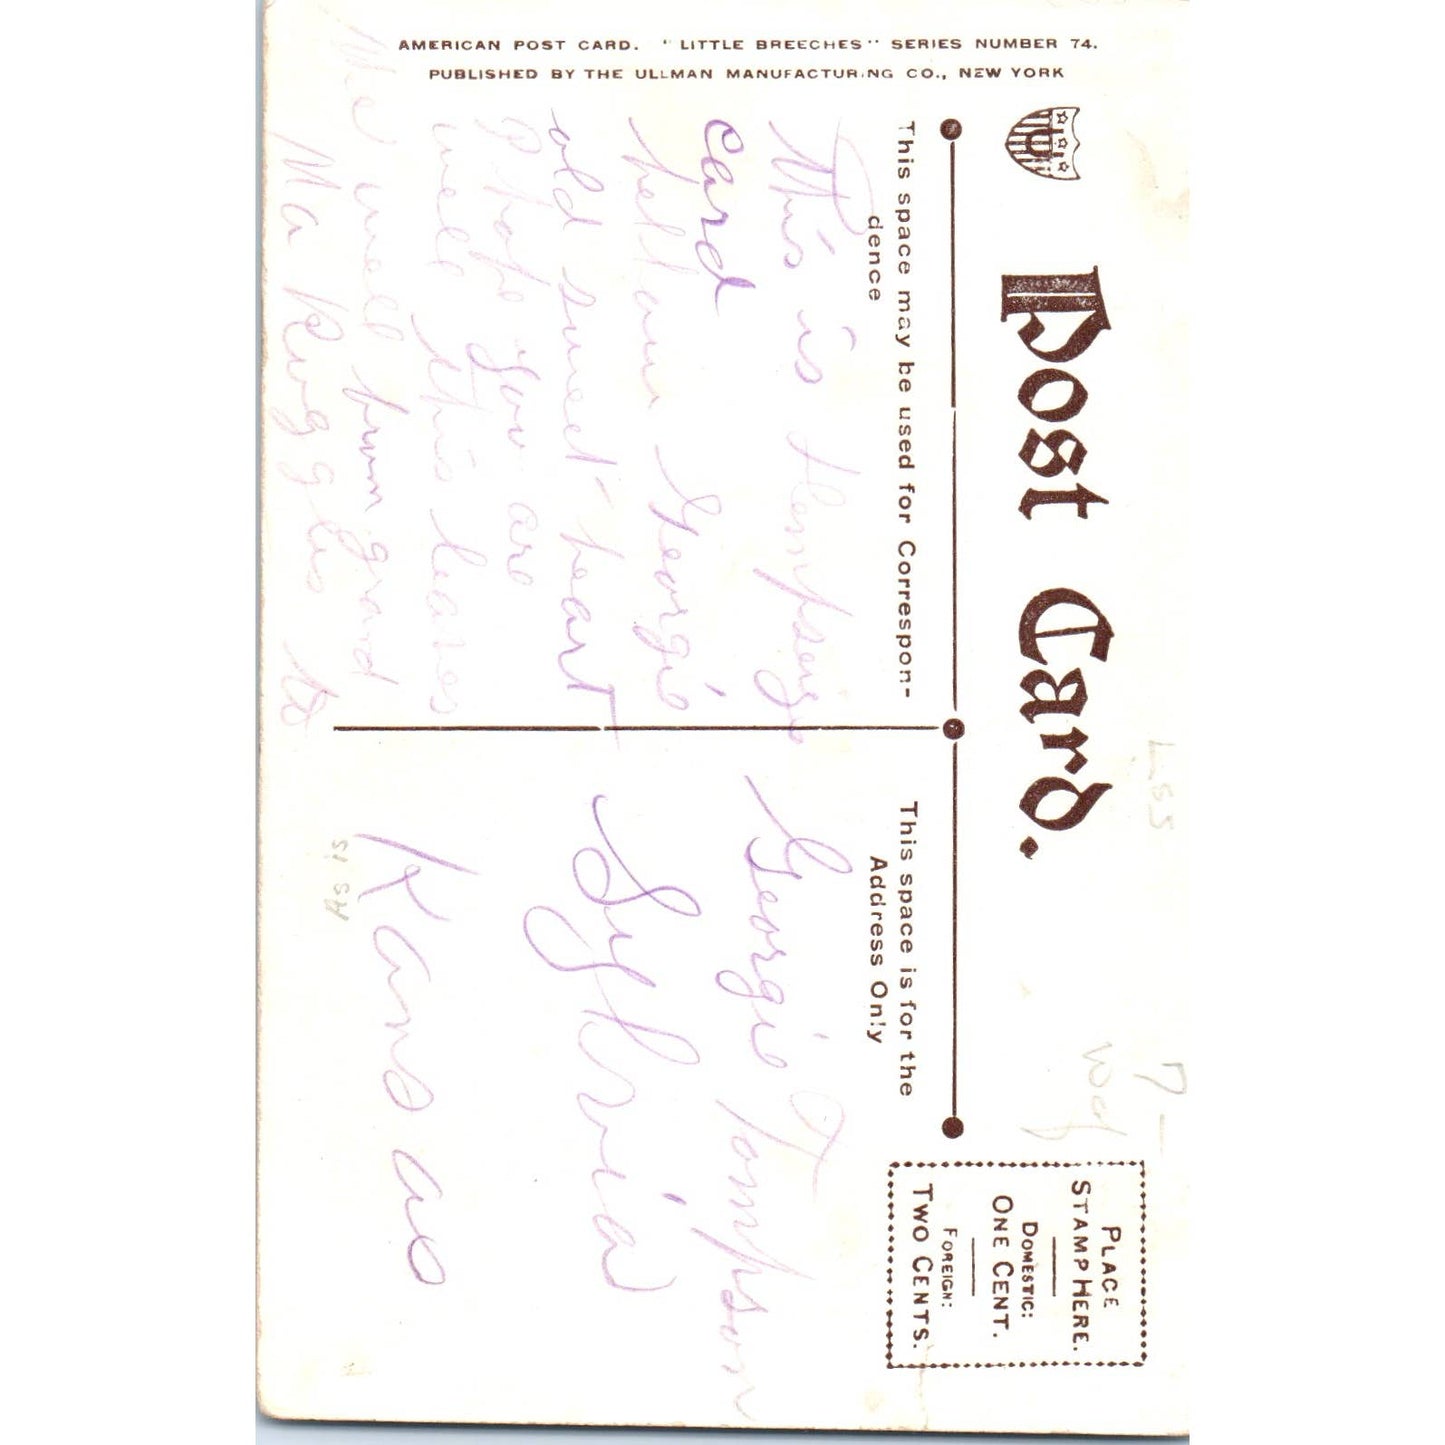 AMERICAN POST CARD. "LITTLE BREECHES" SERIES NUMBER 74.
PUBLISHED BY THE ULLMAN MANUFACTURING CO., NEW YORK
U
Post Card.
This space may be used for Correspon-
dence
This space is for the
Address Only
PLACE
STAMP HERE.
DOMESTIC:
ONE CENT.
FOREIGN:
TWO CENTS.
This is
Card
Georgie
old sweet-heart
I hope you are
well this leaves
well from grand
Ma Ruggles to
Georgie Tompson
Sylvia
Kansas
7-